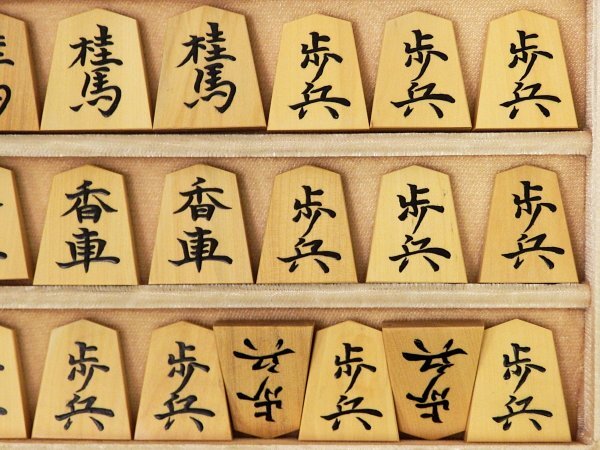 桂馬 桂馬 歩兵 歩兵 歩兵
香車 香車 歩兵 歩兵 歩兵
歩兵 歩兵 歩兵 歩兵 歩兵 歩兵